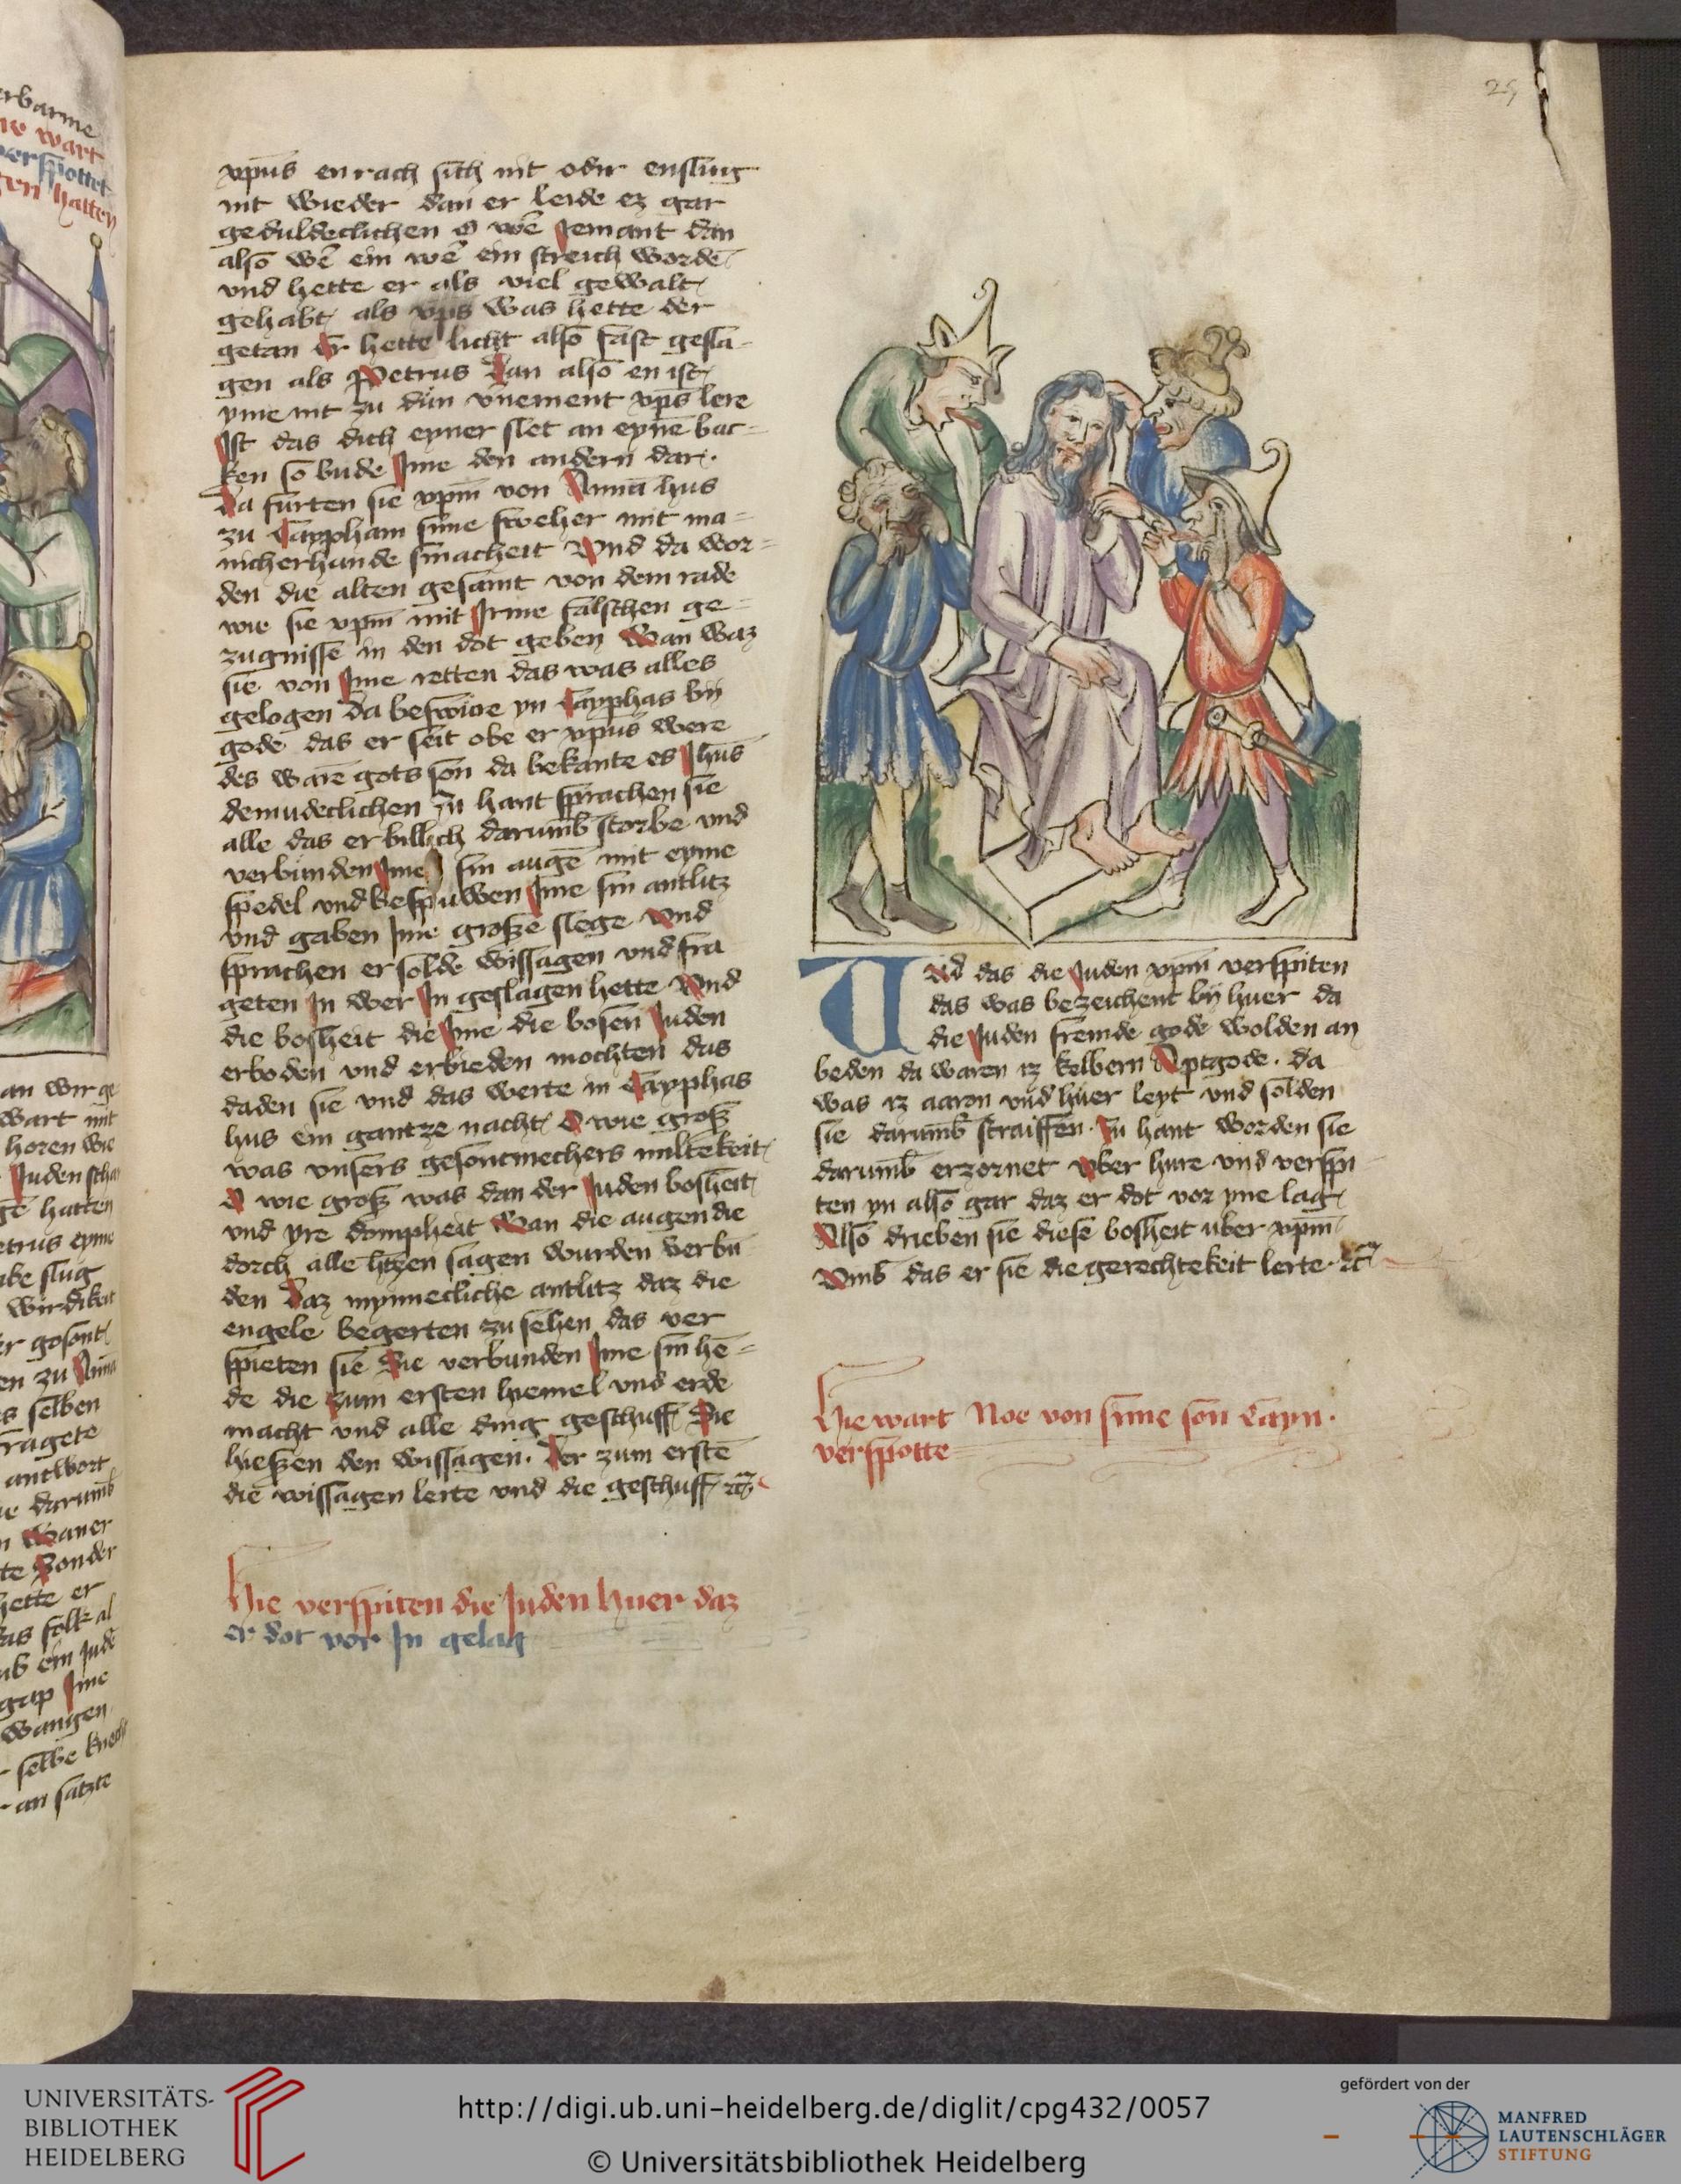 xpūs en rach sich nit oder enslug
nit wieder dan er leide ez gar
geduldeclichen O wē Jemant dan
also wē ein wē ein streich wordē
vnd hette er als viel gewalt
gehabt als xps was hette der
getan Er hette licht also fast gesla-
gen als Petrus Dan also en ist
yme nit zu dun vnement xps lere
Ist das dich eyner slet an eynē bac-
ken so bude Jme den andern dar.
Da furten sie xpm von Anna hus
zu Caypham sime sweher mit ma-
nicherhande smacheit Vnd da wor-
den die alten gesamt von dem rade
wie sie xpm mit Irme falschen ge-
zugnisse in den dot geben Wan waz
sie von Jme retten das was alles
gelogen Da beswure yn Cayphas by
gode das er seit obe er xpus were
des warē gots son da bekante es Jhūs
demudeclichen Zu hant sprachen sie
alle das er billich darumb storbe vnd
verbunden Jme sin augē mit eyme
spedel vnd bespuwen Jme sin antlitz
vnd gaben Jme große slege Vnd
sprachen er solde wissagen vnd fra
geten Jn wer Jn geslagen hette Vnd
die bosheit die Jme die bosen Juden
erboden vnd erbieden mochten das
daden sie vnd das werte in Cayphas
hus ein gantze nacht O wie groß
was vnsers gesontmechers miltekeit
O wie groß was dan der Juden bosheit
vnd yre dompheit Wan die augen die
dorch alle htzen sagen wurden verbū
den Daz mynnecliche antlitz daz die
engele begerten zu sehen das ver
spieten sie Sie verbunden Jme sin hē-
de die zum ersten hiemel vnd erde
macht vnd alle ding geschuff Sie
hießen den wissagen. Der zum erstē
die wissagen lerte vnd die geschuff
Hie verspiten die Juden huer daz
er dot vor Jn gelag
Vnd das die Juden xpm verspiten
das was bezeichent by huer da
die Juden fremde gode wolden an
beden da waren iz kelbern Aptgode. da
was iz aaron vnd huer leyt vnd solden
sie darumb straiffen. Zu hant worden sie
darumb erzornet vber hure vnd verspi
ten yn also gar daz er dot vor yne lag
Also drieben sie diese bosheit uber xpm
Vmb das er sie die gerechtekeit lerte.
Hie wart Noe von sime son Cayn.
verspotte
erbarme
wart
verspottet
halten
wart nit
horen wie
hatten
slug
wirdikeit
selben
fragete
antwort
darumb
Sonder
hette er
das folk al
ein Jude
gap Jme
wangen
selbe
an satzte
UNIVERSITÄTS-
BIBLIOTHEK
HEIDELBERG
http://digi.ub.uni-heidelberg.de/diglit/cpg432/0057
© Universitätsbibliothek Heidelberg
gefördert von der
MANFRED
LAUTENSCHLÄGER
STIFTUNG